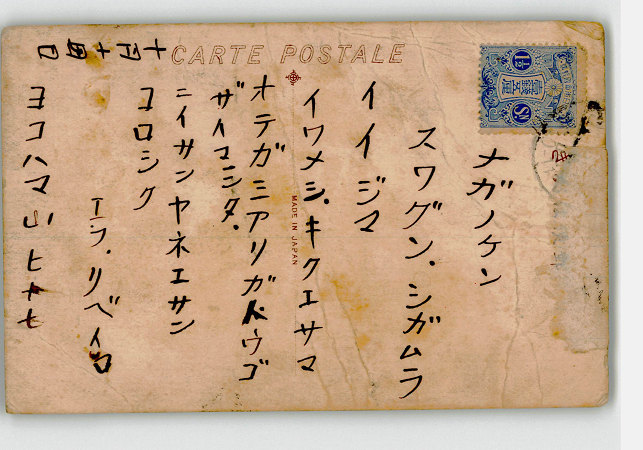 CARTE POSTALE
ナガノケン
スワグン.シガムラ
イイジマ
イワメシ.キクエサマ
オテガミアリガトウゴ
ザイマシタ.
ニイサンヤネエサン
ヨロシク
エラ.リベイロ
ヨコハマ山
十月十四日
MADE IN JAPAN